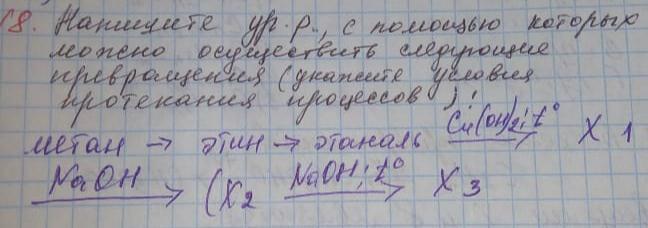 18. Напишите ур. р., с помощью которых
можно осуществить следующие
превращения (укажите условия
протекания процессов):
метан → этин → этаналь Cu(OH)2; t° → X 1
NaOH → (X2 NaOH; t° → X3